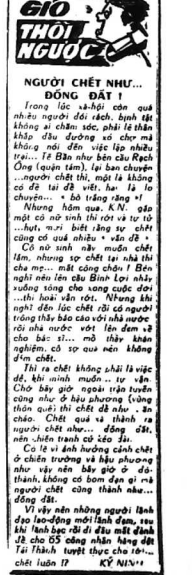 GIÓ
THỔI
NGƯỢC
NGƯỜI CHẾT NHƯ...
ĐỐNG ĐẤT !
Trong lúc xã-hội còn quá
nhiều người đói rách, bịnh tật
không ai chăm sóc, phải lê thân
khắp đầu đường xó chợ mà
không nói đến việc lập nhiều
trại... Tế Bần như bên cầu Rạch
Ông (quận tám), lại bàn chuyện
...người chết thì, một là không
có đề tài để viết, hai là lo
chuyện... « bò trắng răng »!
Nhưng hôm qua, K.N. gặp
một cô nữ sinh thi rớt và tự tử
...hụt, mới biết rằng sự chết
cũng có quá nhiều « vấn đề »
Cô nữ sinh nầy muốn chết
lắm, nhưng sợ chết tại nhà thì
cha mẹ... mất công chôn ! Bèn
nghĩ nên lên cầu Bình Lợi nhảy
xuống sông cho xong cuộc đời
...thi hoài vẫn rớt. Nhưng khi
nghĩ đến lúc chết rồi có người
trông thấy báo cáo với nhà nước
rồi nhà nước vớt lên đem về
cho bác sĩ... mổ thây khán
nghiệm, cô sợ quá nên không
dám chết.
Thì ra chết không phải là việc
dễ, khi mình muốn .. tự vận.
Chớ bây giờ ngoài trận tuyến
cũng như ở hậu phương (vùng
thôn quê) thì chết dễ như . ăn
cháo. Chết quá và thành ra
người chết như... đống đất,
nên chiến tranh cứ kéo dài.
Có lẽ vì ảnh hưởng cảnh chết
ở chiến trường và hậu phương
như vậy nên bây giờ ở đô-
thành, không có bom đạn gì mà
người chết cũng thành như...
đống đất.
Vì vậy nên những người lãnh
đạo lao-động mới lãnh đạm, sau
khi lãnh bạc rồi đi đâu mất đành
để cho 65 công nhân hãng dệt
Tái Thành tuyệt thực cho tới...
chết luôn !? KỲ NINH